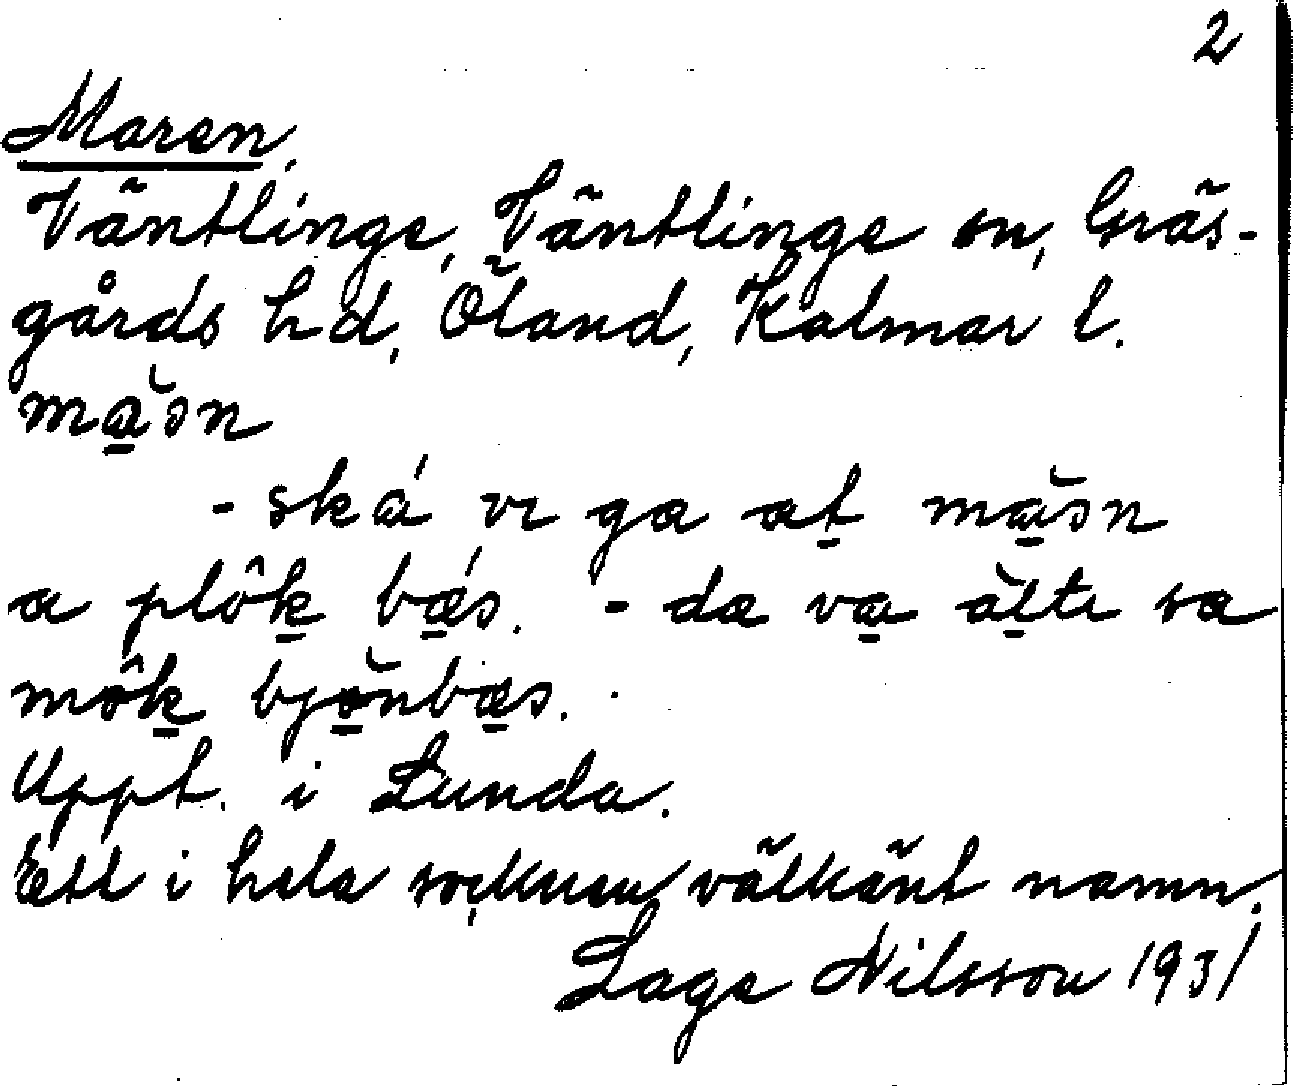 2
Maren.
Väntlinge, Väntlinge sn, Gräs-
gårds hd, Öland, Kalmar l.
mă̱ən
- ská vɩ ga at̠ mă̱ən
a plôḵ bǽ̱s. - da va̱ ăl̠tɩ sa
môḵ bjö̱̆nbæ̱s.
Uppt. i Lunda.
Ett i hela socknen välkänt namn.
Lage Nilsson 1931